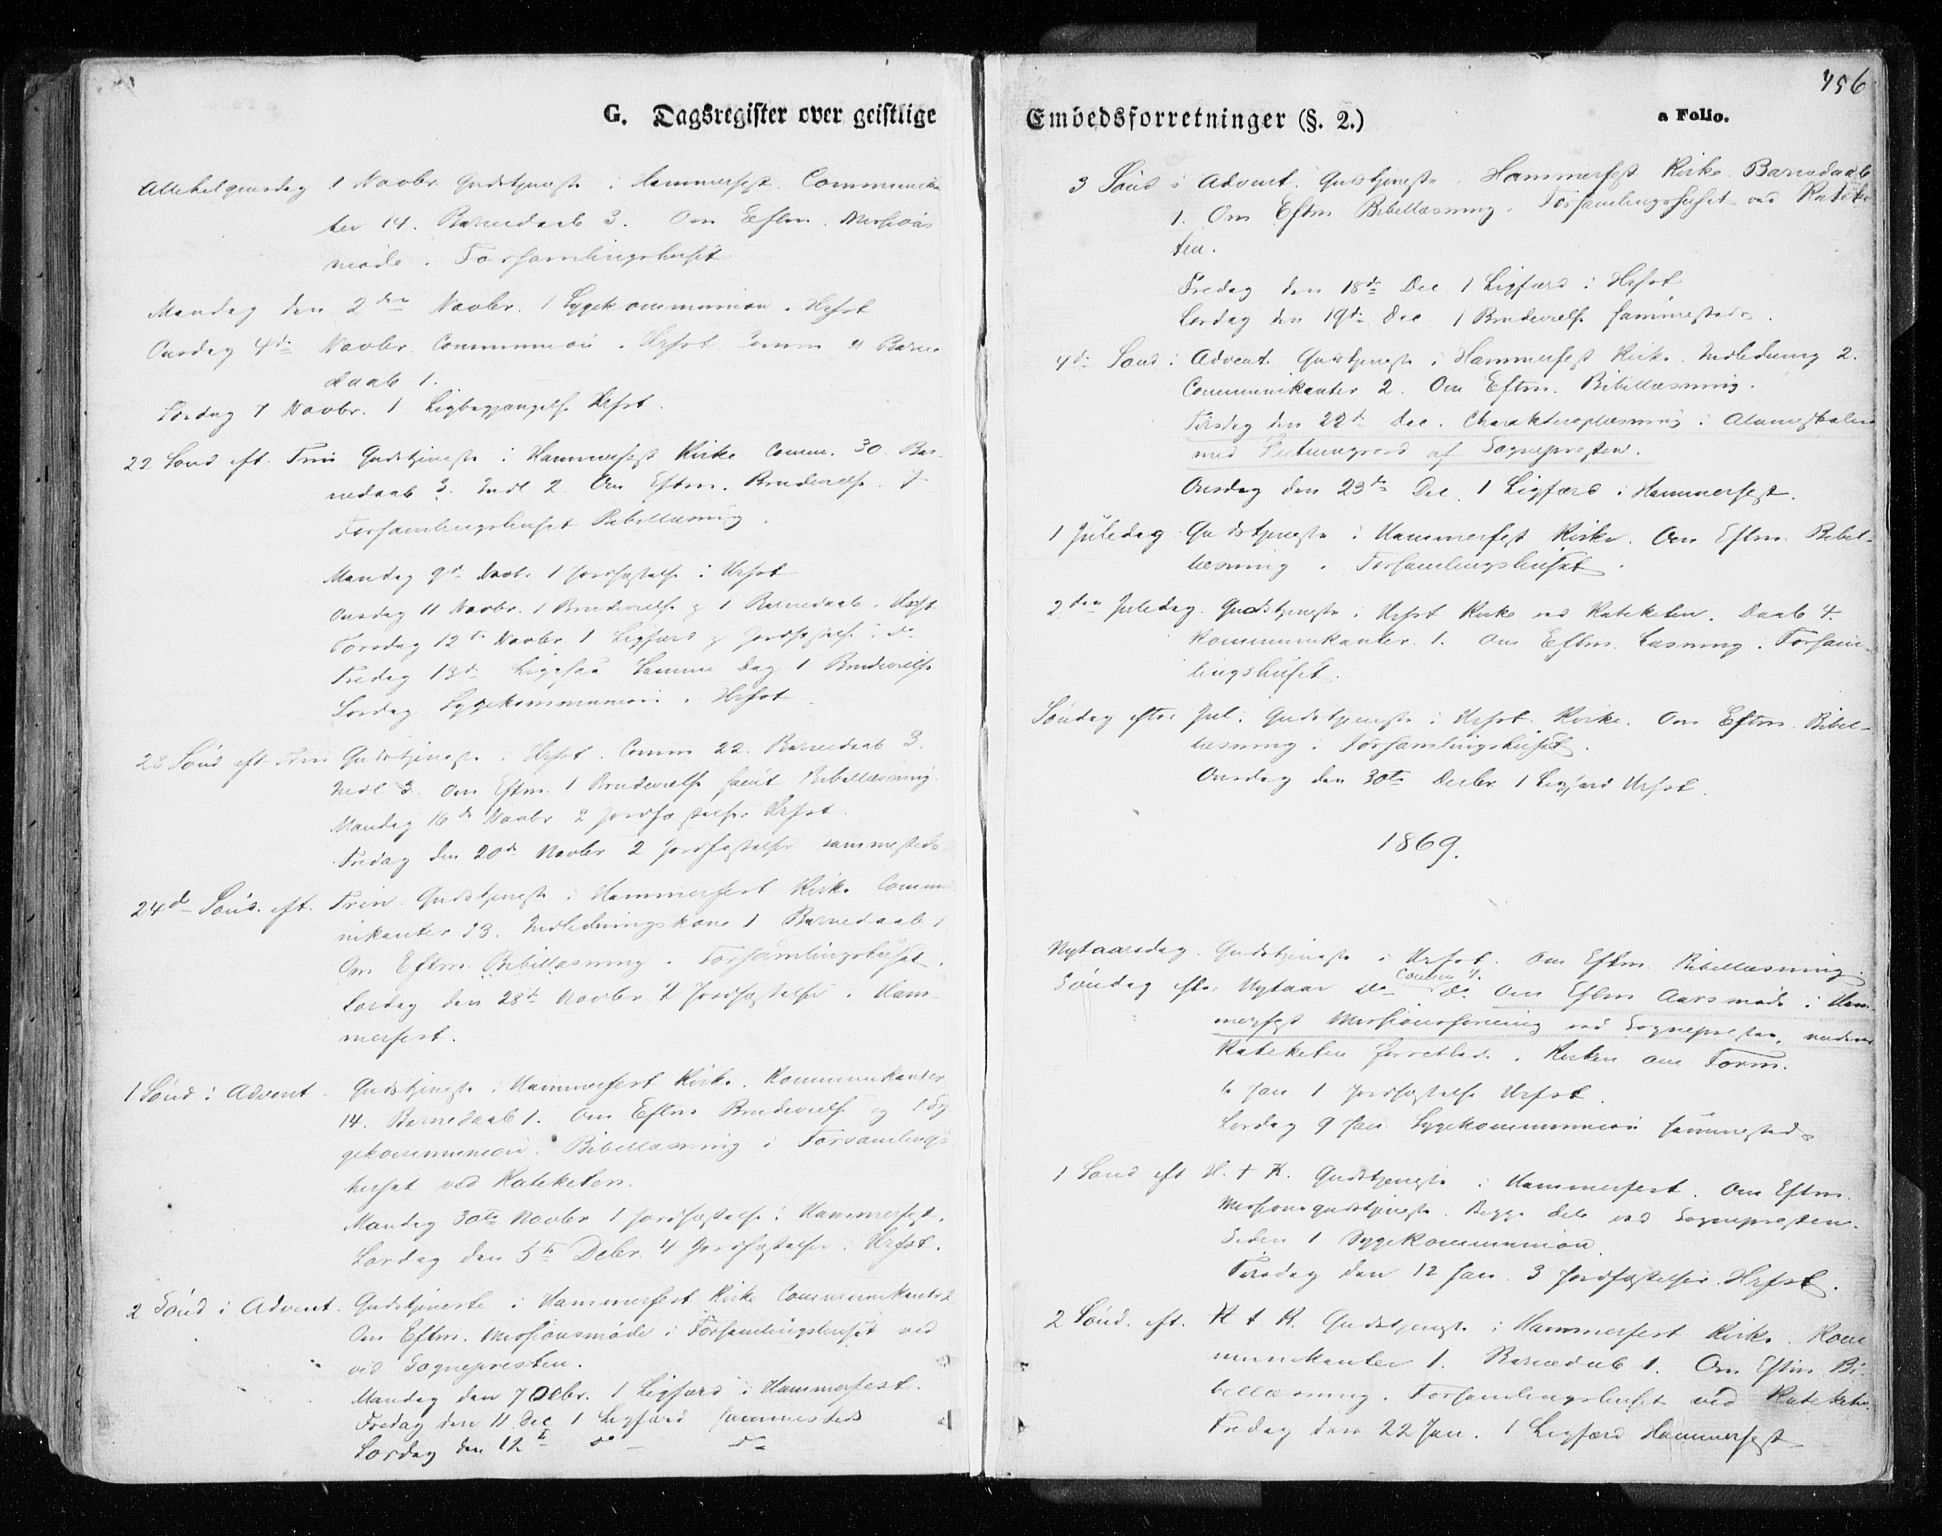 G. Dagsregister over geistlige
Allehelgensdag 1 Novbr. Gudstjeneste i Hammerfest. Communikan
ter 14. Barnedaab 3. Om Eftm. Missions
møde i Forsamlingshuset
Mandag den 2den Novbr. 1 Sygekommunion i Hrfst
Onsdag 4de Novbr. Communion i Hrfst Comm Barne
daab 1.
Lørdag 7 Novbr. 1 Ligbegjængelse Hrfst.
22 Sønd eft. Trin Gudstjeneste i Hammerfest Kirke Comm. 30. Bar-
nedaab 3. Indl 2. Om Eftm. Brudevielse. I
Forsamlingshuset Bibellæsning.
Mandag 9de Novbr 1 Jordfæstelse i Hrfst
Onsdag 11 Novbr. 1 Brudevielse og 1 Barnedaab i Hrfst
Torsdag 12te Novbr 1 Ligfærd og Jordfæstelse i do
Fredag 13de Ligesaa Samme Dag 1 Brudevielse
Lørdag Sygekommunion i Hrfst.
23 Sønd eft Trin Gudstjeneste i Hrfst. Comm 22. Barnedaab 3.
Indl 3. Om Eftm. 1 Brudevielse samt Bibellæsning.
Mandag 16de Novbr 2 Jordfæstelser Hrfst.
Fredag den 20de Novbr 2 Jordfæstelser sammesteds
24de Sønd. eft. Trin. Gudstjeneste i Hammerfest Kirke Commu
nikanter 13. Indledningskone 1 Barnedaab 1
Om Eftm. Bibellæsning i Forsamlingshuset.
Lørdag den 28de Novbr 2 Jordfæstelser i Ham-
merfest.
1 Sønd i Advent. Gudstjeneste i Hammerfest Kirke. Kommunikanter
14. Barnedaab 1. Om Eftm Brudevielse og 1 Sy
gekommunion. Bibellæsning i Forsamlings
huset ved Kateketen.
Mandag 30te Novbr 1 Jordfæstelse i Hammerfest.
Lørdag den 5te Decbr. 4 Jordfæstelser i Hrfst.
2 Sønd i Advent. Gudstjeneste i Hammerfest Kirke Communikanter 2
Om Eftm. Missionsmøde i Forsamlingshuset ved
ved Sognepresten.
Mandag den 7 Decbr. 1 Ligfærd i Hammerfest.
Fredag den 11 Dec 1 Ligfærd sammesteds
Lørdag den 12te do do
Embedsforretninger (§. 2.)
a Folio.
456
3 Sønd i Advent. Gudstjeneste i Hammerfest Kirke. Barnedaab
1. Om Eftm Bibellæsning i Forsamlingshuset ved Kateke
ten.
Fredag den 18de Dec 1 Ligfærd i Hrfst
Lørdag den 19de Dec 1 Brudevielse sammesteds.
4de Sønd i Advent. Gudstjeneste i Hammerfest Kirke. Indledning 2.
Communikanter 2. Om Eftm. Bibellæsning.
Tirsdag den 22de Dec. Charakteroplæsning i Almueskolen
med af Sognepresten.
Onsdag den 23de Dec. 1 Ligfærd i Hammerfest.
1 Juledag Gudstjeneste i Hammerfest Kirke. Om Eftm. Bibel-
læsning i Forsamlingshuset.
2den Juledag. Gudstjeneste i Hrfst Kirke ved Kateketen. Daab 4.
Kommunikanter 1. Om Eftm. Læsning i Forsam-
lingshuset.
Søndag efter Jul. Gudstjeneste i Hrfst. Kirke. Om Eftm. Bibel-
læsning i Forsamlingshuset.
Onsdag den 30te Decbr 1 Ligfærd Hrfst.
1869.
Nytaarsdag. Gudstjeneste i Hrfst. Om Eftm. Bibellæsning.
Comm 4.
Søndag efter Nytaar do do. Om Eftm Aarsmøde i Ham-
merfest Missionsforening ved Sognepresten, medens
Kateketen forrettede i Kirken om Form.
6 Jan 1 Jordfæstelse Hrfst.
Lørdag 9 Jan Sygekommunion sammesteds
1 Sønd eft H. t K. Gudstjeneste i Hammerfest. Om Eftm.
Missionsgudstjeneste. Begge dele ved Sognepresten.
Siden 1 Sygekommunion.
Tirsdag den 12 Jan 3 Jordfæstelser Hrfst.
2 Sønd. eft. H t. K. Gudstjeneste i Hammerfest Kirke. Kom
munikanter 1. Barnedaab 1. Om Eftm Bi-
bellæsning i Forsamlingshuset ved Kateketen.
Fredag den 22 Jan. 1 Ligfærd Hammerfest